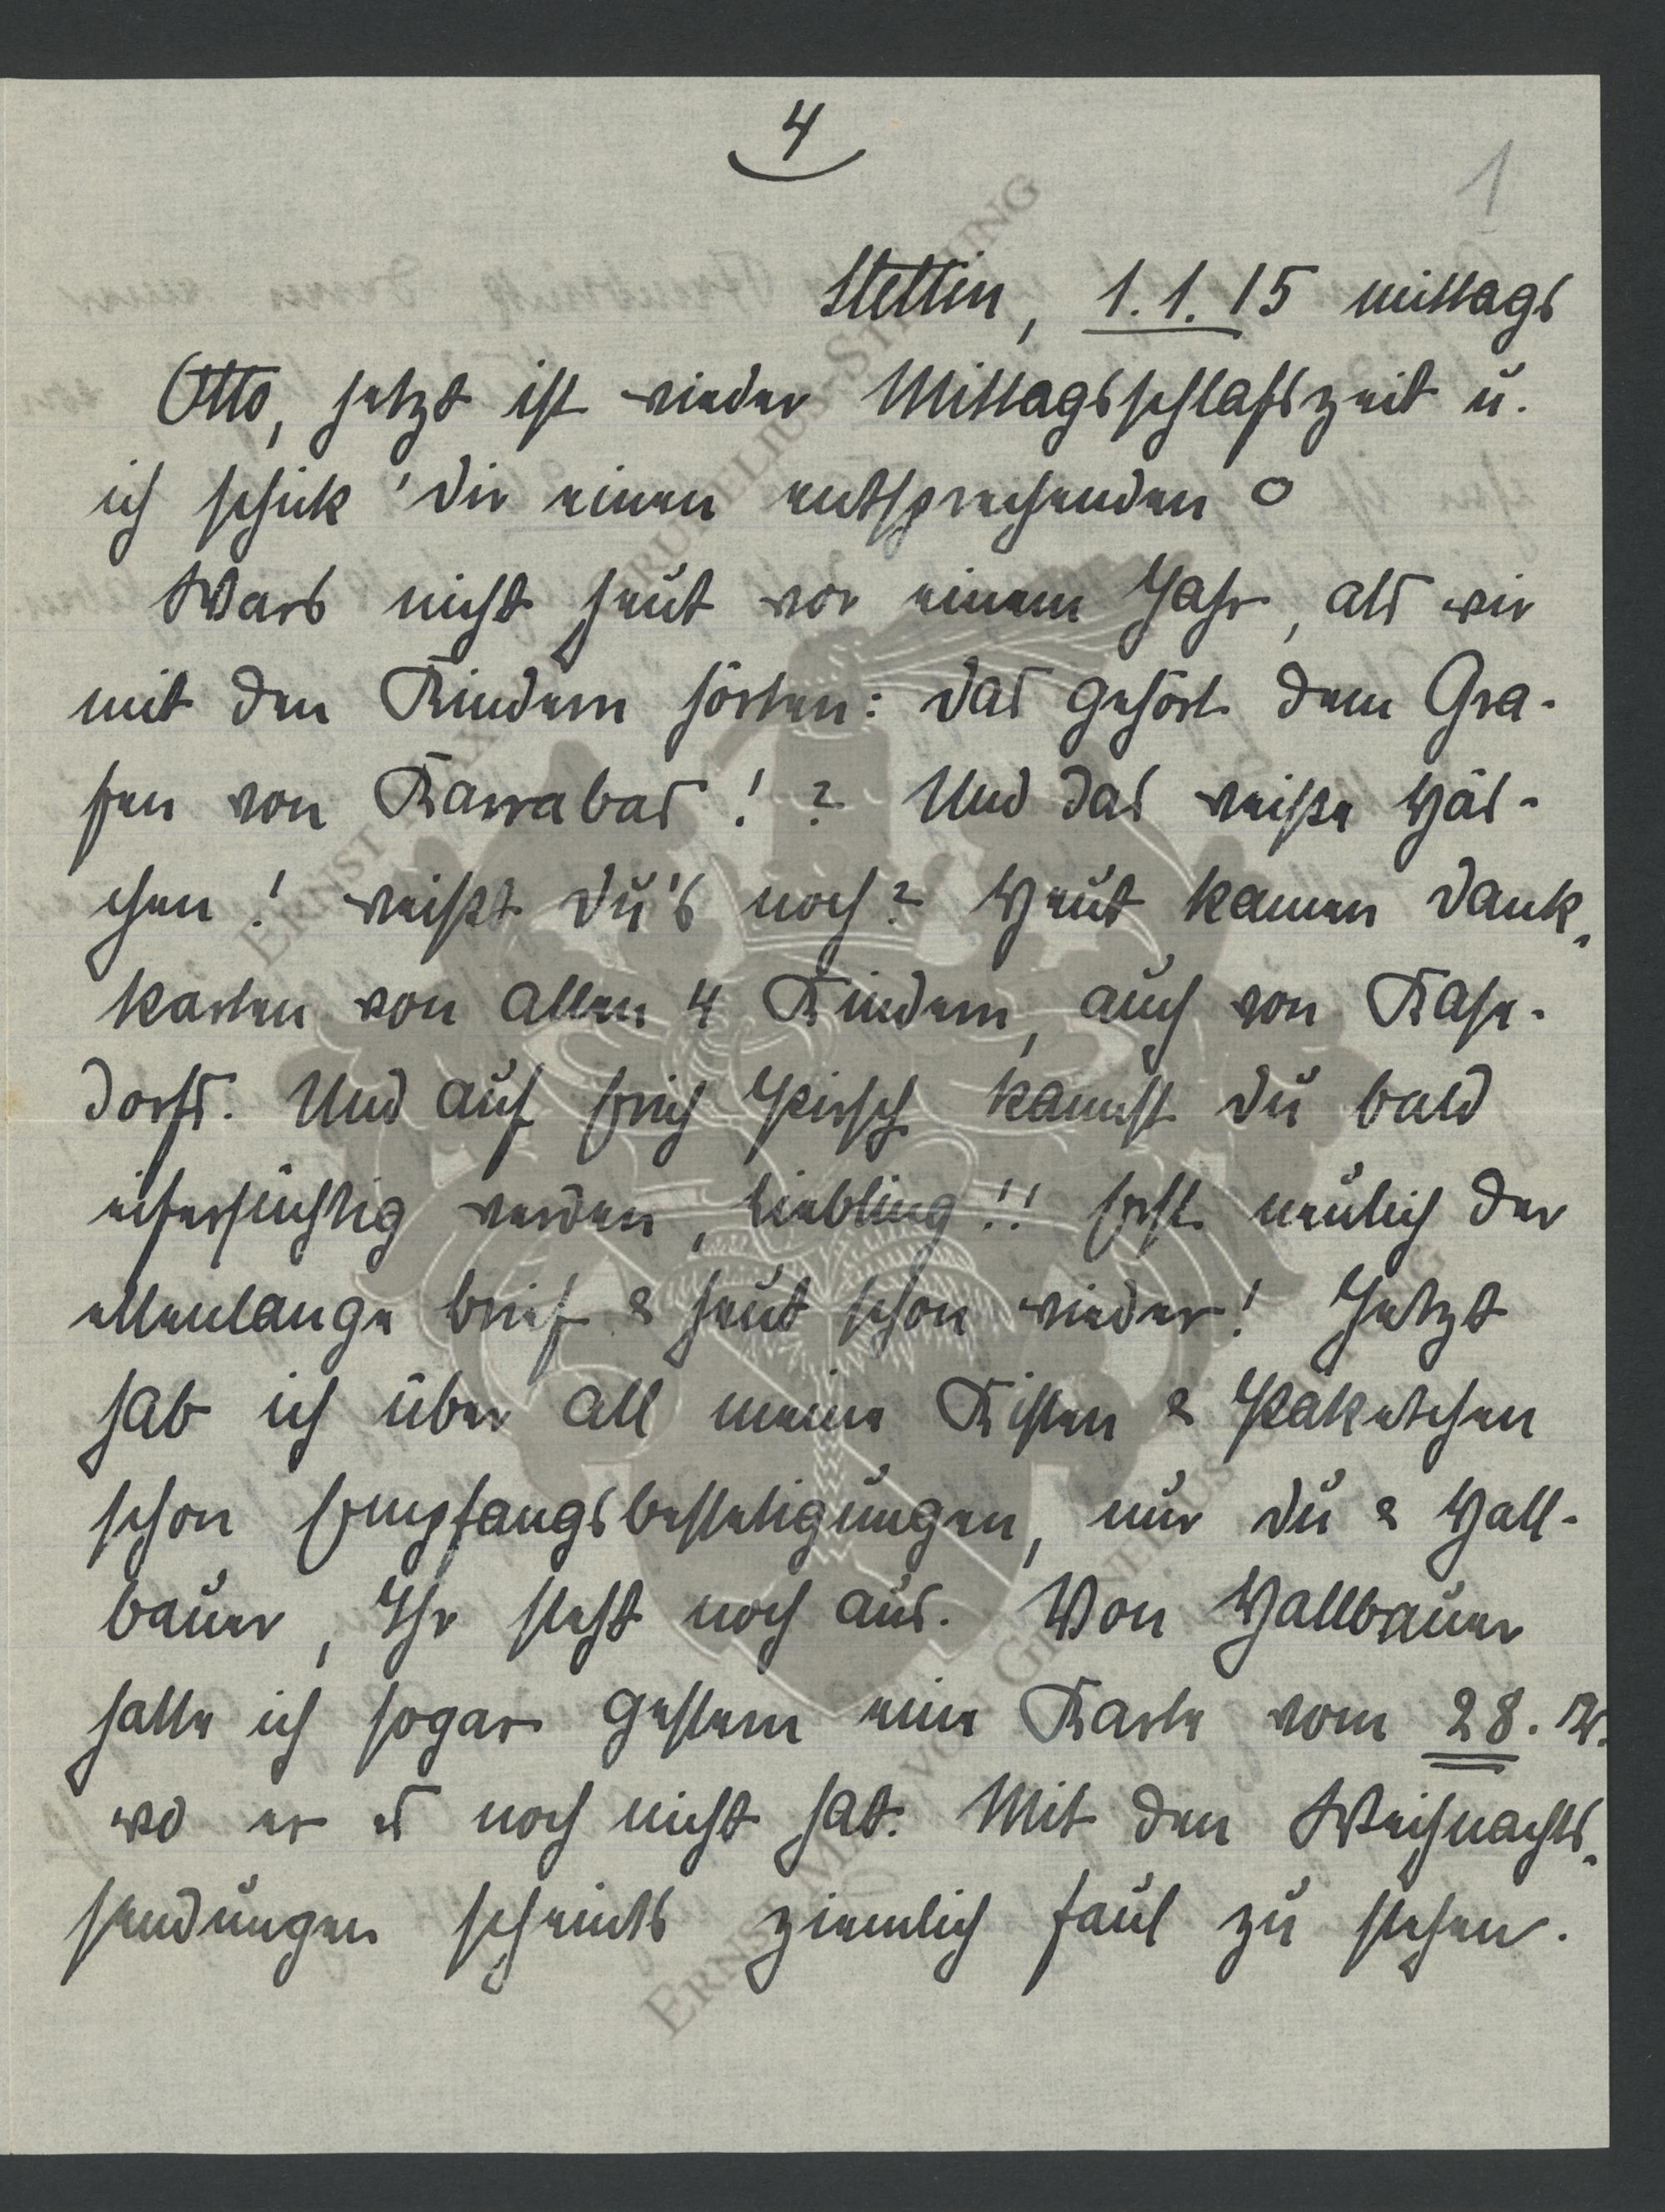 4
1
Stettin, 1.1.15 mittags
Otto, jetzt ist wieder Mittagsschlafszeit u.
ich schick' dir einen entsprechenden o
Wars nicht heut vor einem Jahr, als wir
mit den Kindern hörten: das gehört dem Gra-
fen von Karrabas!? Und das weiße Häs-
chen! weißt du's noch? Heut kamen Dank-
karten von allen 4 Kindern, auch von Kase-
dorfs. Und auf Erich Pirsch kannst du bald
eifersüchtig werden, Liebling!! Erst neulich der
ellenlange brief & heut schon wieder! Jetzt
hab ich über all meine Kisten & Päketchen
schon Empfangsbestätigungen, nur du & Hall-
bauer, Ihr steht noch aus. Von Hallbauer
hatte ich sogar gestern eine Karte vom 28. 12.
wo er es noch nicht hat. Mit den Weihnachts-
sendungen scheints ziemlich faul zu stehen.